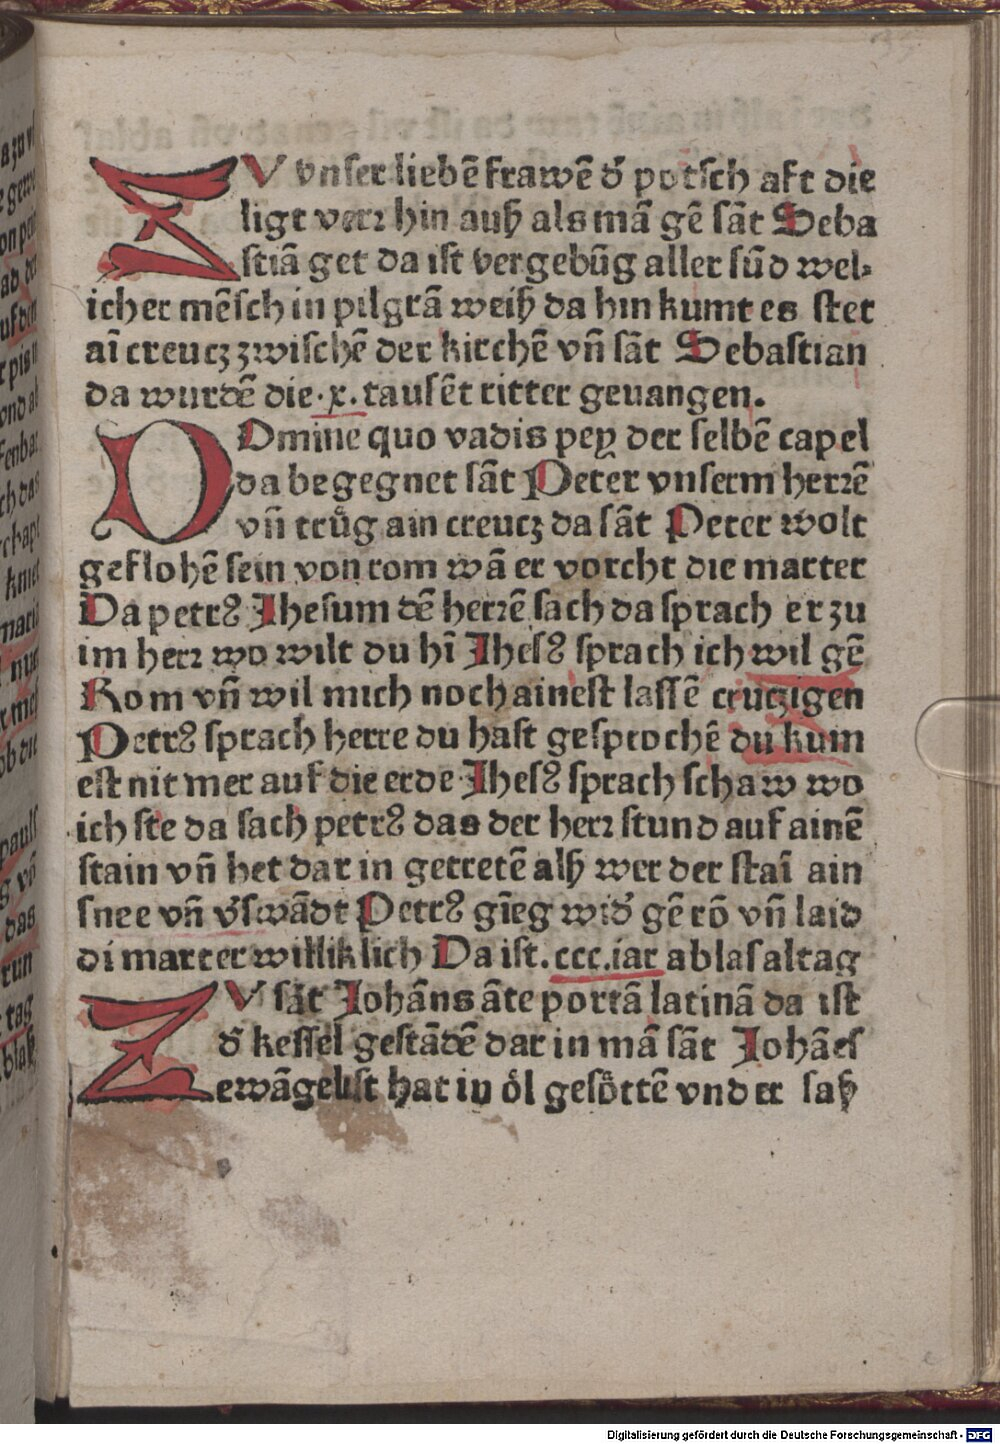 ZV vnser liebē frawē d' potsch aft die
ligt verr hin auß als mā gē sāt Seba
stiā get da ist vergebūg aller sūd wel⸗
icher mēsch in pilgrā weiß da hin kumt es stet
aī creucz zwischē der kirchē vn̄ sāt Sebastian
da wurdē die .x. tausēt ritter geuangen.
DOmine quo vadis pey der selbē capel
da begegnet sāt Peter vnserm herrē
vn̄ trůg ain creucz da sāt Peter wolt
geflohē sein von rom wā er vorcht die marter
Da petrꝰ Jhesum dē herrē sach da sprach er zu
im herr wo wilt du hī Jhesꝰ sprach ich wil gē
Rom vn̄ wil mich noch ainest lassē cruczigen
Petrꝰ sprach herre du hast gesprochē du kum
est nit mer auf die erde Jhesꝰ sprach schaw wo
ich ste da sach petrꝰ das der herr stund auf ainē
stain vn̄ het dar in getretē alß wer der staī ain
snee vn̄ v'swādt Petrꝰ gīeg wid' gē rō vn̄ laid
di marter williklich Da ist .ccc.iar ablas altag
ZV sāt Johāns āte portā latinā da ist
d' kessel gestādē dar in mā sāt Johāes
ewāgelist hat in öl gesöttē vnder saß
Digitalisierung gefördert durch die Deutsche Forschungsgemeinschaft - DFG